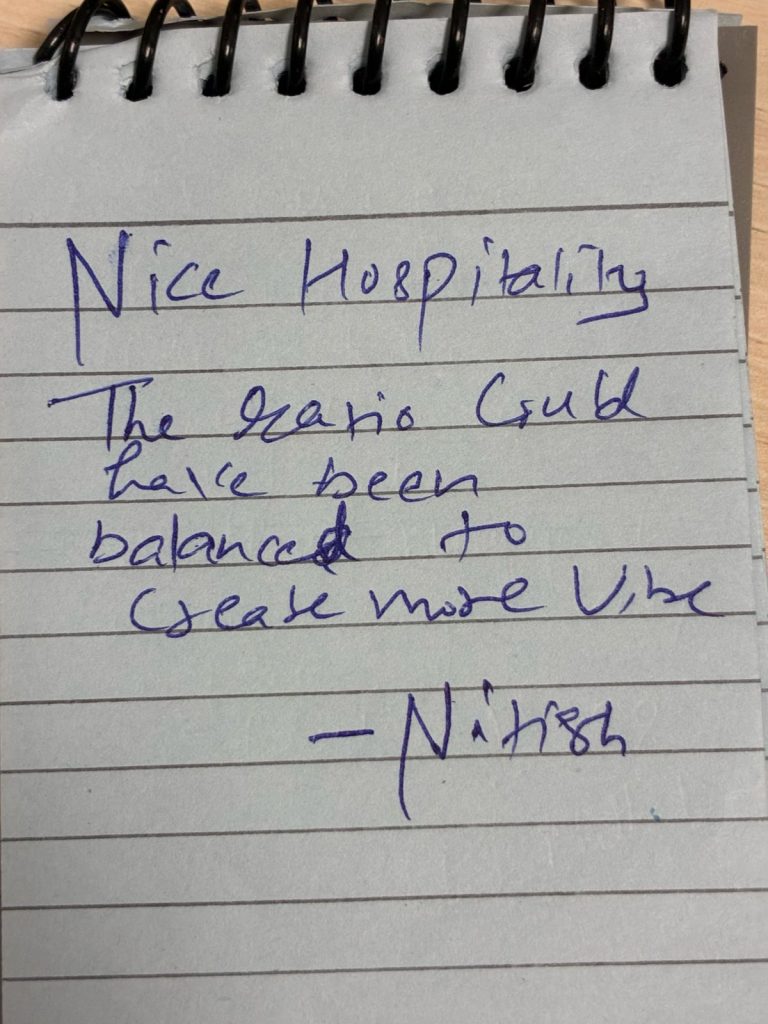 Nice Hospitality
The ratio Could
have been
balanced to
Create more Vibe
- Nitish